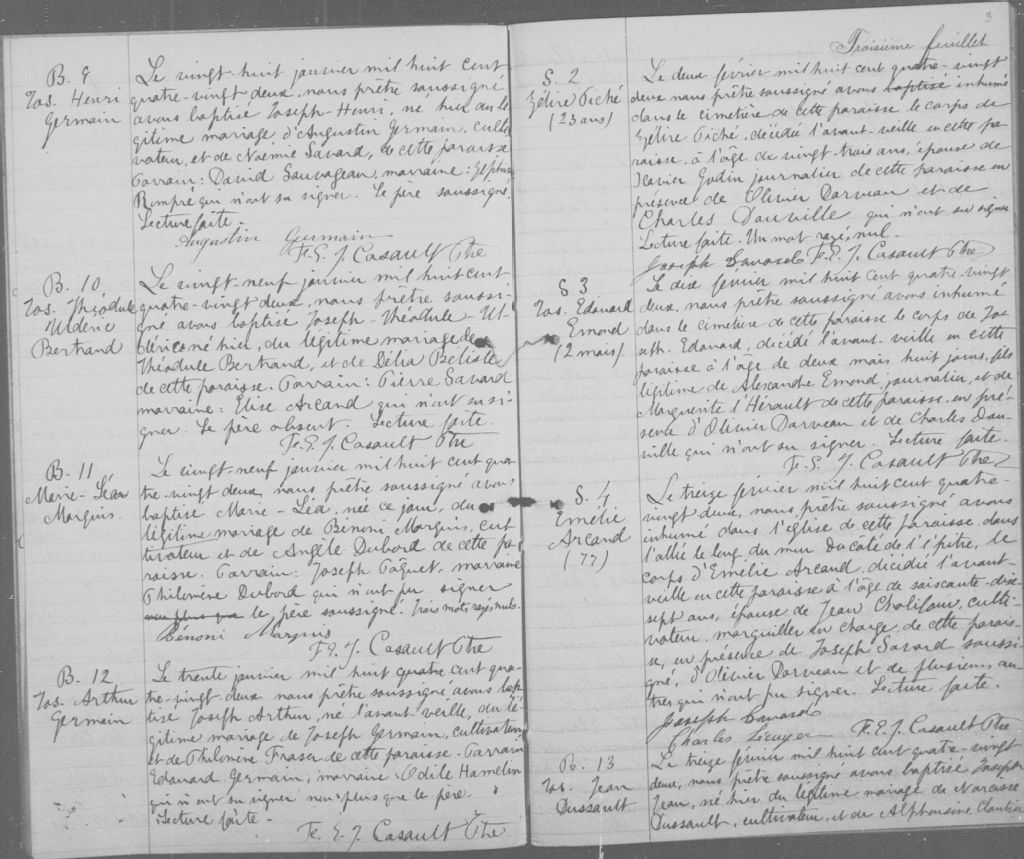 B. 9
Jos. Henri
Germain
Le vingt-huit janvier mil huit cent
quatre-vingt deux, nous prêtre soussigné
avons baptisé Joseph-Henri, né hier du lé
gitime mariage d'Augustin Germain, culti
vateur, et de Noémie Savard, de cette paroisse
Parrain: David Sauvageau, marraine:
Rompré qui n'ont su signer. Le père soussigné.
Lecture faite.
Augustin Germain
F. E. J. Casault Ptre
B. 10
Jos. Théodule
Ulderic
Bertrand
Le vingt-neuf janvier mil huit cent
quatre-vingt deux, nous prêtre soussi-
gné avons baptisé Joseph-Théodule-Ul-
déric né hier, du légitime mariage de
Théodule Bertrand, et de Délia Belisle
de cette paroisse. Parrain: Pierre Savard
marraine: Elise Arcand qui n'ont su si-
gner. Le père absent. Lecture faite.
F. E. J. Casault Ptre
B. 11
Marie-Léa
Marquis.
Le vingt-neuf janvier mil huit cent qua
tre-vingt deux, nous prêtre soussigné avons
baptisé Marie-Léa, née ce jour, du
légitime mariage de Bénoni Marquis, cul
tivateur et de Angèle Dubord de cette pa
roisse. Parrain: Joseph Paquet, marraine
Philomène Dubord qui n'ont pu signer
non plus que le père soussigné. Trois mots rayés nuls.
Bénoni Marquis
F. E. J. Casault Ptre
B. 12
Jos. Arthur
Germain
Le trente janvier mil huit quatre cent qua-
tre-vingt deux nous prêtre soussigné avons bap
tisé Joseph Arthur, né l'avant-veille, du lé-
gitime mariage de Joseph Germain, cultivateur
et de Philomène Fraser de cette paroisse. Parrain
Edouard Germain, marraine: Odile Hamelin
qui n'ont su signer non plus que le père.
Lecture faite.
F. E. J. Casault Ptre
3
Troisième feuillet
S. 2
Zélire Piché
(23 ans)
Le deux février mil huit cent quatre-vingt
deux nous prêtre soussigné avons baptisé inhumé
dans le cimetière de cette paroisse le corps de
Zélire Piché, décédée l'avant-veille en cette pa-
roisse, à l'âge de vingt-trois ans, épouse de
Xavier Godin journalier de cette paroisse en
présence de Olivier Darveau et de
Charles Douville qui n'ont su signer
Lecture faite. Un mot rayé, nul.
Joseph Savard F. E. J. Casault Ptre
S 3
Jos. Edouard
Emond
(2 mois)
Le dix février mil huit cent quatre-vingt
deux, nous prêtre soussigné avons inhumé
dans le cimetière de cette paroisse le corps de Jos
eph. Edouard, décédé l'avant-veille en cette
paroisse à l'âge de deux mois huit jours, fils
légitime de Alexandre Emond, journalier, et de
Marguerite l'Hérault de cette paroisse, en pré-
sence d'Olivier Darveau et de Charles Dou-
ville qui n'ont su signer. Lecture faite.
F. E. J. Casault Ptre
S. 4
Emélie
Arcand
(77)
Le treize février mil huit cent quatre-
vingt deux, nous, prêtre soussigné avons
inhumé dans l'église de cette paroisse, dans
l'allée le long du mur du côté de l'épitre, le
corps d'Emélie Arcand, décédée l'avant-
veille en cette paroisse à l'âge de soixante-dix
sept ans, épouse de Jean Cholifour, culti-
vateur, marguiller en charge, de cette parois-
se, en présence de Joseph Savard soussi-
gné, d'Olivier Darveau et de plusieurs au-
tres qui n'ont pu signer. Lecture faite.
Joseph Savard
Charles F. E. J. Casault Ptre
B. 13
Jos. Jean
Dussault
Le treize février mil huit cent quatre-vingt
deux, nous prêtre soussigné avons baptisé Joseph
Jean, né hier du légitime mariage de Narcisse
Dussault, cultivateur, et de Alphonsine